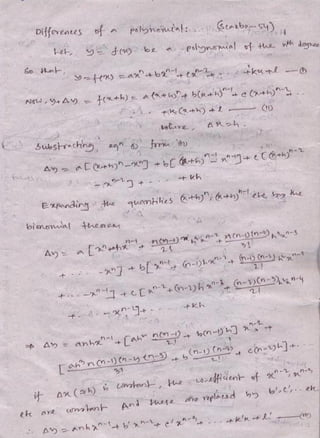 Differences of a polynomial: (Scarbo-54)
Let, y = f(x) be a polynomial of the nth degree
So that,
y = f(x) = axⁿ + bxⁿ⁻¹ + cxⁿ⁻² + ... + kx + l — (I)
Now, y+Δy = f(x+h) = a(x+h)ⁿ + b(x+h)ⁿ⁻¹ + c(x+h)ⁿ⁻² ...
+ k(x+h) + l — (II)
where, Δx = h.
Substracting, eqn (I) from (II)
Δy = a[(x+h)ⁿ - xⁿ] + b[(x+h)ⁿ⁻¹ - xⁿ⁻¹] + c[(x+h)ⁿ⁻²
- xⁿ⁻²] + ... + kh
Expanding the quantities (x+h)ⁿ, (x+h)ⁿ⁻¹ etc by the
binomial theorem,
Δy = a[xⁿ + nhxⁿ⁻¹ + n(n-1)/2! h²xⁿ⁻² + n(n-1)(n-2)/3! h³xⁿ⁻³
+ ... - xⁿ] + b[xⁿ⁻¹ + (n-1)hxⁿ⁻² + (n-1)(n-2)/2! h²xⁿ⁻³
+ ... - xⁿ⁻¹] + c[xⁿ⁻² + (n-2)hxⁿ⁻³ + (n-2)(n-3)/2! h²xⁿ⁻⁴
+ ... - xⁿ⁻²] + ... + kh.
⇒ Δy = anhxⁿ⁻¹ + [ah² n(n-1)/2! + b(n-1)h] xⁿ⁻² +
[ah³ n(n-1)(n-2)/3! + b (n-1)(n-2)/2! + c(n-2)h] + ...
If Δx (=h) is constant, the co-efficient of xⁿ⁻², xⁿ⁻³,
etc are constant And these are replaced by b', c' ... etc
∴ Δy = anhxⁿ⁻¹ + b'xⁿ⁻² + c'xⁿ⁻³ + ... + k'x + l' — (III)